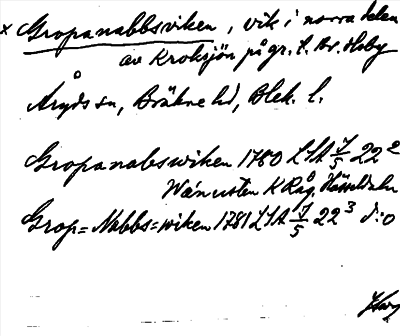 x Gropanabbsviken, vik i norra delen
av Kroksjön på gr. t. Br. Hoby
Åryds sn, Bräkne hd, Blek. l.
Gropanabswiken 1780 LSA 7/5 22²
Wånusten K Råg.
Grop=Nabbs=wiken 1781 LSA 7/5 22³ d:o